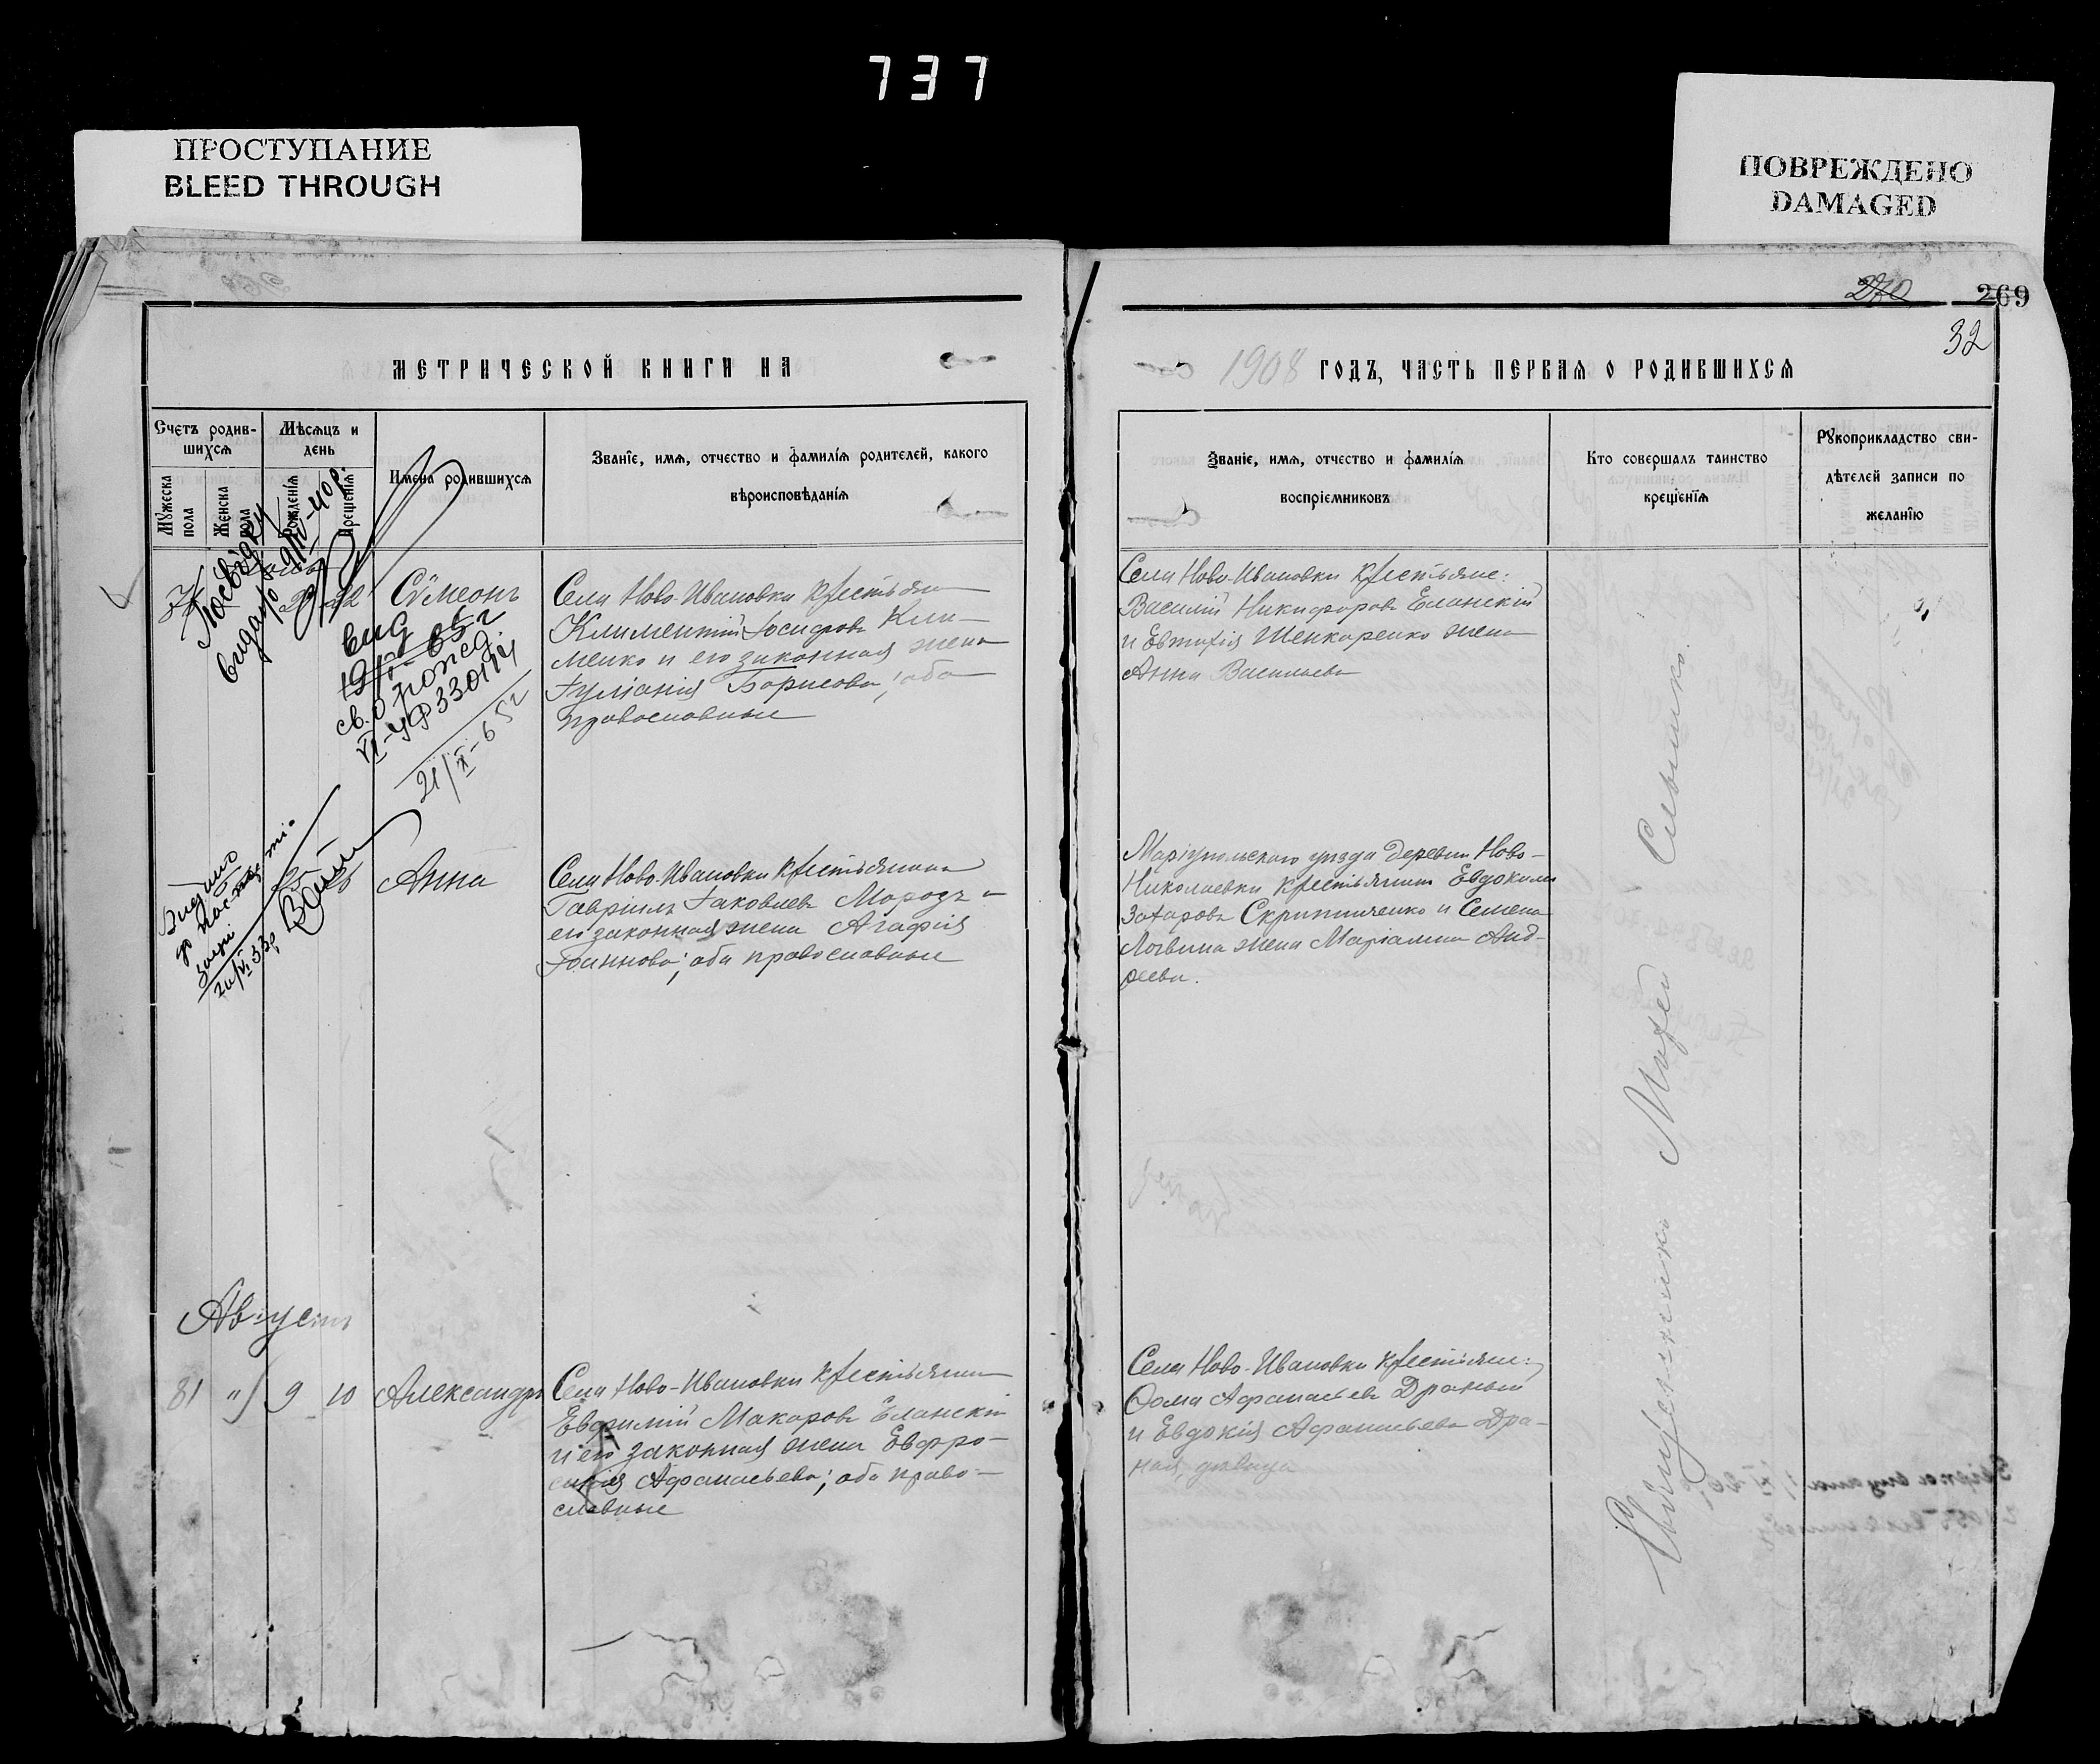 737
ПРОСТУПАНИЕ
BLEED THROUGH
ПОВРЕЖДЕНО
DAMAGED
270 269
32
МЕТРИЧЕСКОЙ КНИГИ НА
1908 ГОДЪ, ЧАСТЬ ПЕРВАЯ О РОДИВШИХСЯ
Счетъ родив-
шихся
Мужеска пола
Женска пола
Мѣсяцъ и
день
Рожденія
Крещенія
Имена родившихся
Званіе, имя, отчество и фамилія родителей, какого
вѣроисповѣданія
Званіе, имя, отчество и фамилія
воспріемниковъ
Кто совершалъ таинство
крещенія
Рукоприкладство сви-
дѣтелей записи по
желанію
Посвідку
видано
40 р.
Сѵмеонъ
вид
св. о рожед
VI-УР 330114
21/X-65 г
Села Ново-Ивановки крестьянин
Климентій Іосифовъ Кли-
менко и его законная жена
Іуліанія Борисова; оба
православные
Села Ново-Ивановки крестьяне:
Василій Никифоровъ Еланскій
и Евтихія Шенкаренко жена
Анна Васильева
Видано
25 26
Анна
Села Ново-Ивановки крестьянинъ
Гавріилъ Іаковлевъ Морозъ и
его законная жена Агафія
Іоаннова; оба православные
Маріупольскаго уѣзда деревни Ново-
Николаевки крестьянинъ Евдокимъ
Захаровъ Скрипниченко и Семена
Логвина жена Маріамна Анд-
реева.
Августъ
81 " 9 10 Александръ
Села Ново-Ивановки крестьянинъ
Евфимій Макаровъ Еланскій
и его законная жена Евфро-
синія Афанасьева; оба право-
славные
Села Ново-Ивановки крестьяне:
Фома Афанасьевъ Драный
и Евдокія Афанасьева Дра-
ная, дѣвица
Священникъ Михей Слышко.